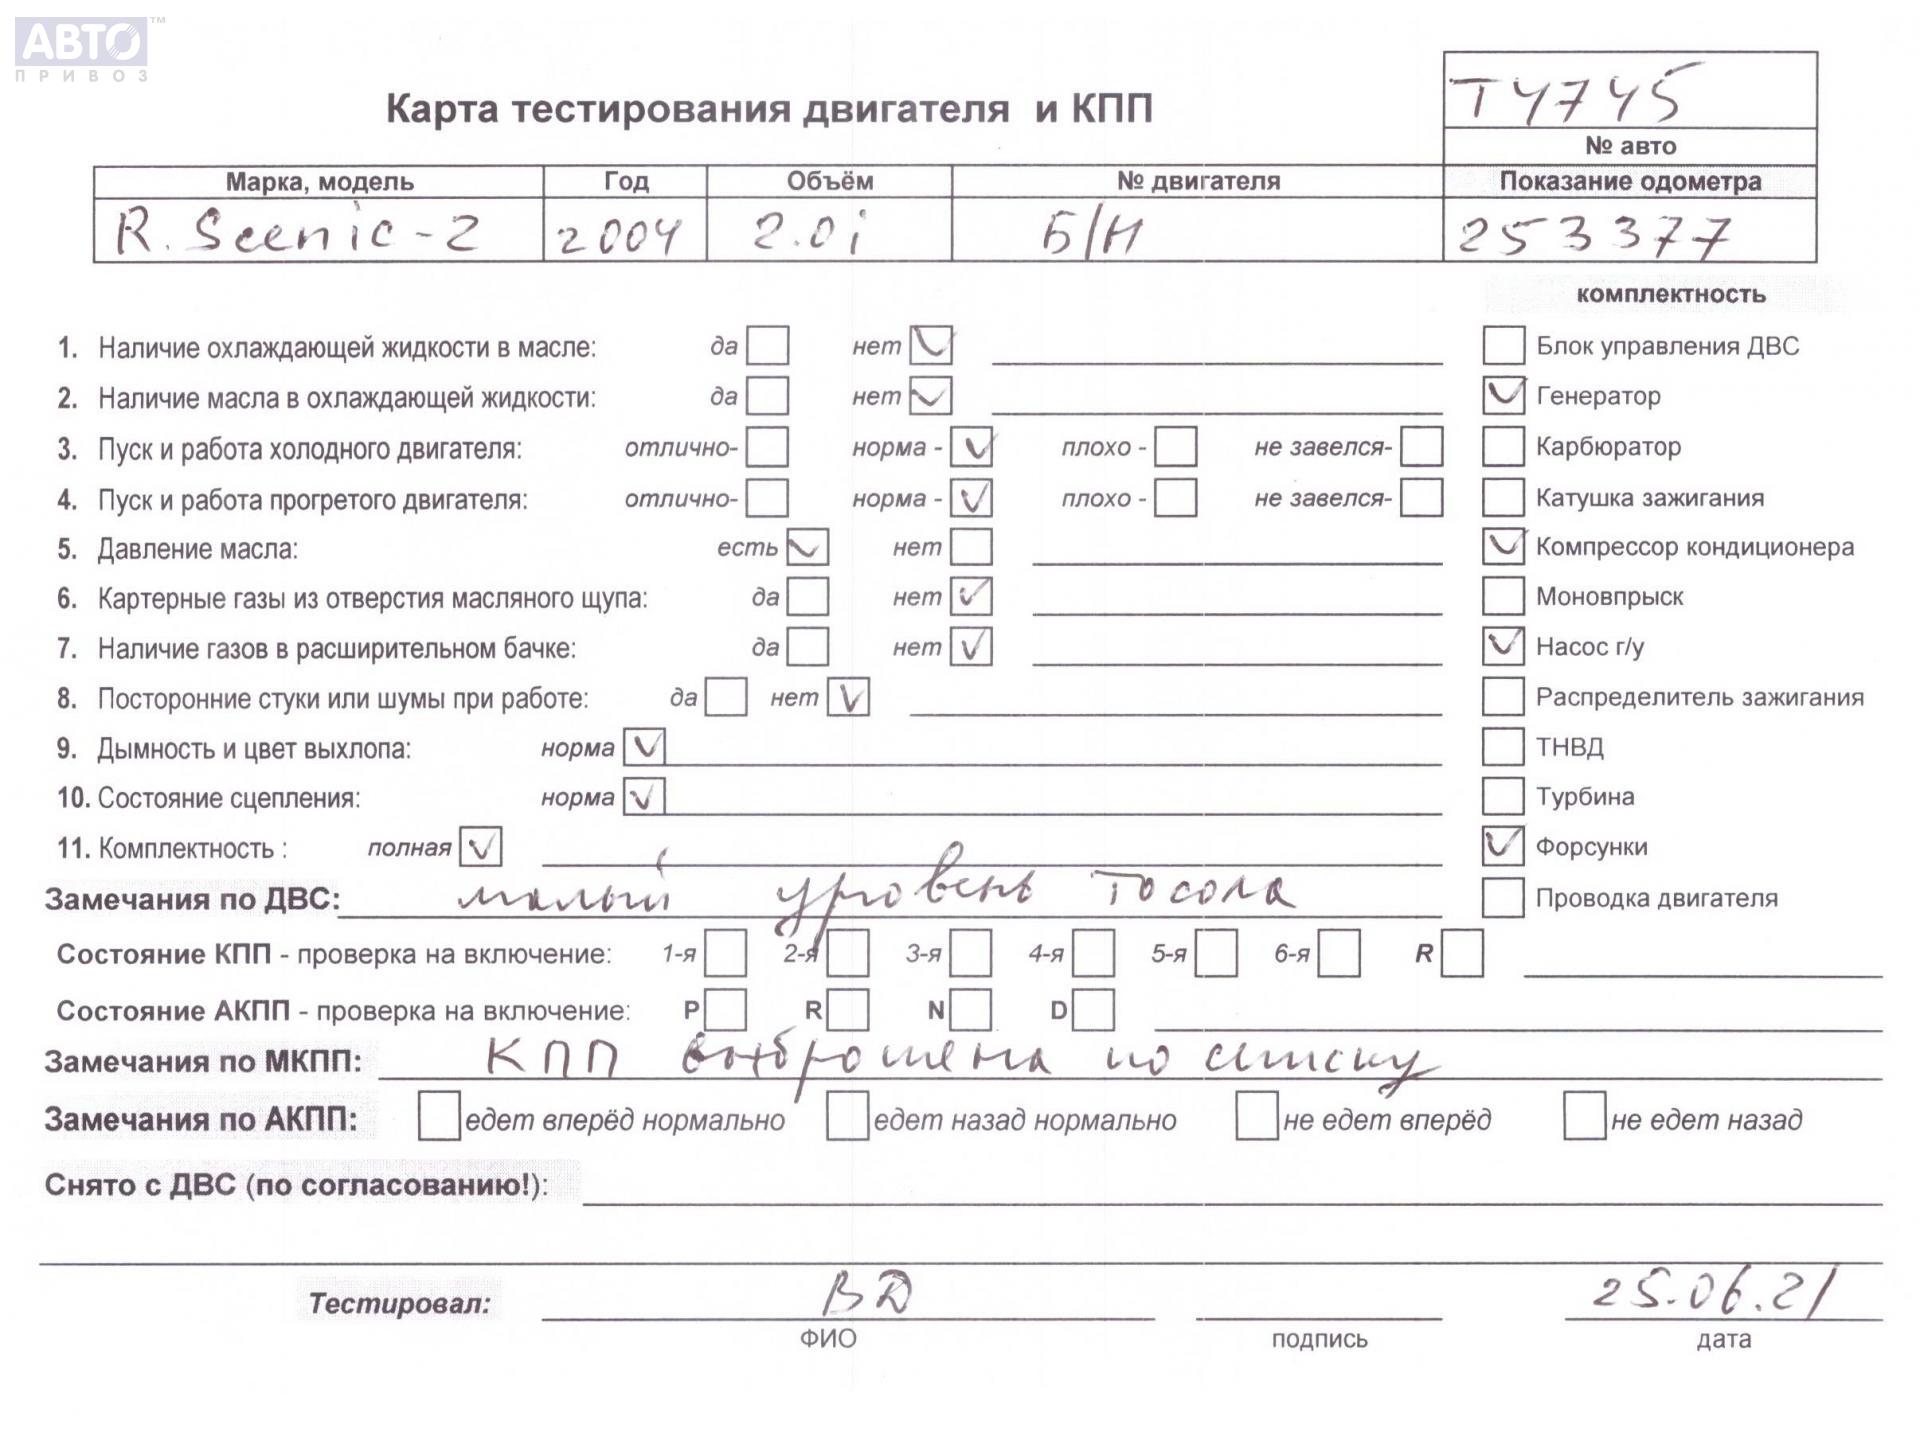 АВТО™
ПРИВОЗ
Карта тестирования двигателя и КПП
T4745
№ авто
Марка, модель Год Объём № двигателя Показание одометра
R. Scenic-2 2004 2.0i Б/Н 253377
комплектность
1. Наличие охлаждающей жидкости в масле: да нет Блок управления ДВС
2. Наличие масла в охлаждающей жидкости: да нет Генератор
3. Пуск и работа холодного двигателя: отлично- норма - плохо - не завелся- Карбюратор
4. Пуск и работа прогретого двигателя: отлично- норма - плохо - не завелся- Катушка зажигания
5. Давление масла: есть нет Компрессор кондиционера
6. Картерные газы из отверстия масляного щупа: да нет Моновпрыск
7. Наличие газов в расширительном бачке: да нет Насос г/у
8. Посторонние стуки или шумы при работе: да нет Распределитель зажигания
9. Дымность и цвет выхлопа: норма ТНВД
10. Состояние сцепления: норма Турбина
11. Комплектность : полная Форсунки
Замечания по ДВС: малый уровень тосола Проводка двигателя
Состояние КПП - проверка на включение: 1-я 2-я 3-я 4-я 5-я 6-я R
Состояние АКПП - проверка на включение: P R N D
Замечания по МКПП: КПП выброшена по списку
Замечания по АКПП: едет вперёд нормально едет назад нормально не едет вперёд не едет назад
Снято с ДВС (по согласованию!):
Тестировал: ВД 25.06.21
ФИО подпись дата